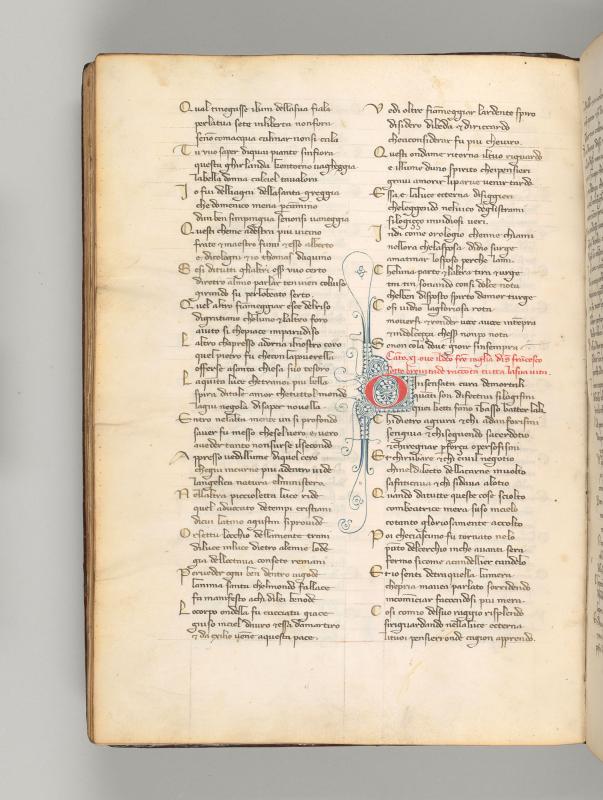 Qual tinegasse iluin della sua fiala
per la tua sete in liberta non fora
se no comacqua chal mar non si cala
Tu vuo saper di quai piante sinfiora
questa ghirlanda chentorno vagheggia
la bella donna calciel tavalora
Io fui delliagni della santa greggia
che domenico mena per camino
du ben simpingua se non si vaneggia
Questi che me adestra piu vicino
frate e maestro fumi & esso alberto
e di cologni & io thomas daquino
Se si di tutti ghaltri esser vuo certo
diretro al mio parlar ten vien col viso
girando su per lo beato serto
Quel altro fiameggiar esce del riso
di gratiano che luno & laltro foro
aiuto si che piace in paradiso
Laltro chapresso adorna il nostro coro
quel pietro fu che con la poverella
offerse a santa chiesa suo tesoro
La quinta luce che tra noi piu bella
spira di tale amor che tuttol mondo
la giu ne gola di saper novella
Entro ne lalta mente un si profondo
saver fu messo che sel vero e vero
a veder tanto non surse il secondo
Apresso vedi il lume di quel cero
che giu in carne piu adentro vide
langelica natura el ministero
Nellaltra piccioletta luce ride
quel advocato de tempi cristiani
di cui latino agustin si provide
Or se tu locchio della mente trani
di luce in luce dietro ale mie lode
gia dellottava con sete rimani
Per veder ogni ben dentro vi gode
lanima santa chel mondo fallace
fa manifesto a chi di lei ben ode
Lo corpo ondella fu cacciata giace
giuso in ciel dauro & essa da martiro
& da exilio venne a questa pace
Vedi oltre fiameggiar lardente spiro
disidero di beda & di riccardo
che a considerar fu piu che viro
Questi onda me ritorna il tuo riguardo
e il lume duno spirito che pensieri
gravi a morir li parve venir tardo
Essa e la luce etterna di sigieri
che leggendo nel vico degli strami
silogizzo invidiosi veri
Indi come orologio che ne chiami
nellora che la sposa di dio surge
a matinar lo sposo perche lami
Che luna parte & laltra tira & urge
tin tin sonando con si dolce nota
chel ben disposto spirto damor turge
Cosi vidio la gloriosa rota
moversi & render voce a voce in tepra
& in dolcezza chesser non po nota
Se non cola dove gioir sinsempra
Canto xi ove il detto fre
O insensata cura de mortali
quanti son difectivi silogismi
quei che ti fano in basso batter lali
Chi dietro a giura & chi ad anforismi
sen giva & chi seguendo sacerdotio
& chi regnar per forza o per sofismi
Et chi rubare & chi civil negotio
chi nel diletto della carne involto
safaticava & chi si dava a lotio
Quando da tutte queste cose sciolto
con beatrice mera suso in cielo
cotanto gloriosamente accolto
Poi che ciascuno fu tornato nelo
punto del cerchio in che avanti sera
fermo si come a candellier candelo
Et io senti dentra quella lumera
che pria mavea parlato sorridendo
incominciar faccendosi piu mera
Cosi comio del suo raggio risplendo
si riguardando nella luce etterna
li tuoi pensieri onde cagion apprendo